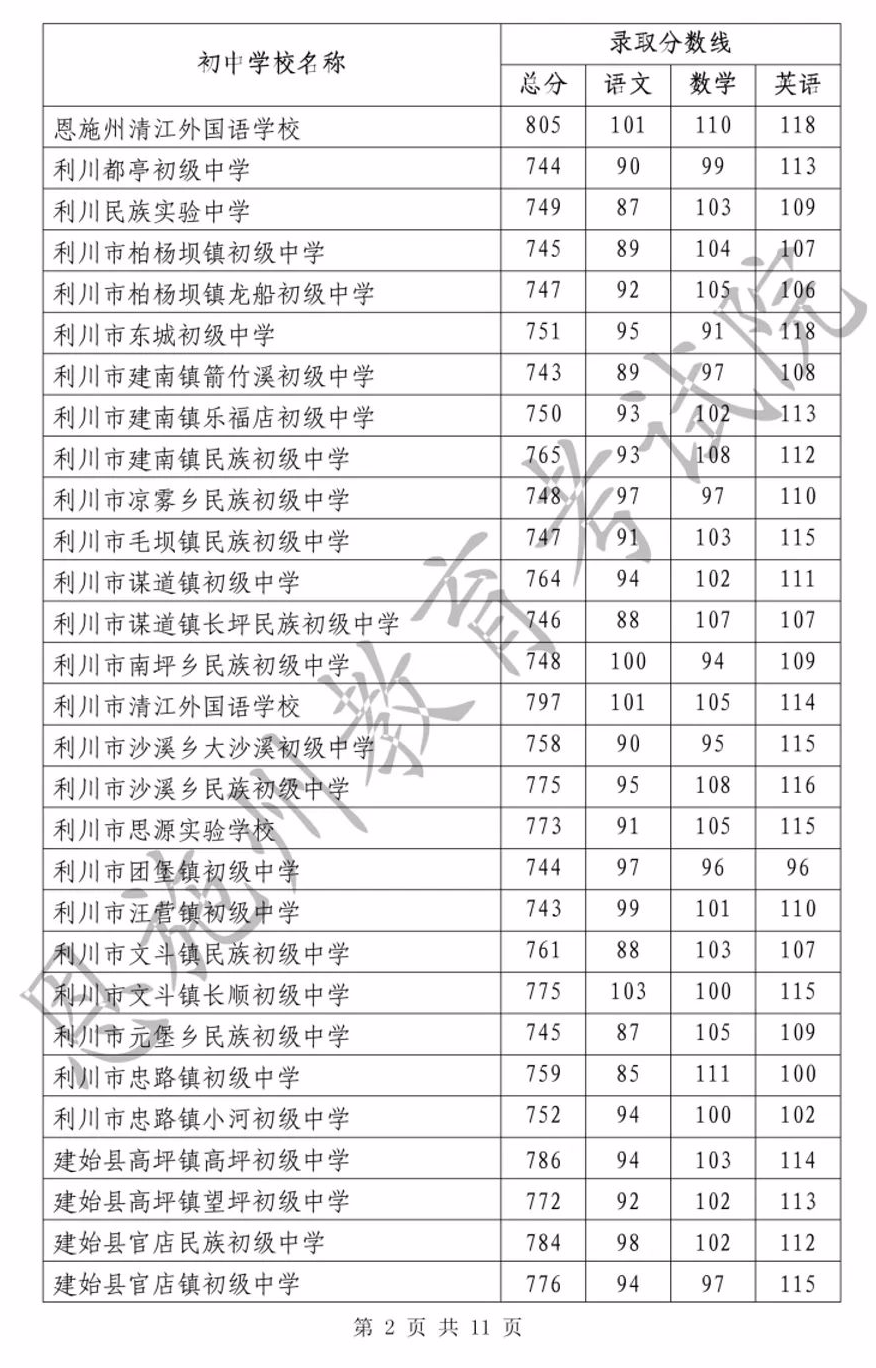 初中学校名称 录取分数线
总分 语文 数学 英语
恩施州清江外国语学校 805 101 110 118
利川都亭初级中学 744 90 99 113
利川民族实验中学 749 87 103 109
利川市柏杨坝镇初级中学 745 89 104 107
利川市柏杨坝镇龙船初级中学 747 92 105 106
利川市东城初级中学 751 95 91 118
利川市建南镇箭竹溪初级中学 743 89 97 108
利川市建南镇乐福店初级中学 750 93 102 113
利川市建南镇民族初级中学 765 93 108 112
利川市凉雾乡民族初级中学 748 97 97 110
利川市毛坝镇民族初级中学 747 91 103 115
利川市谋道镇初级中学 764 94 102 111
利川市谋道镇长坪民族初级中学 746 88 107 107
利川市南坪乡民族初级中学 748 100 94 109
利川市清江外国语学校 797 101 105 114
利川市沙溪乡大沙溪初级中学 758 90 95 115
利川市沙溪乡民族初级中学 775 95 108 116
利川市思源实验学校 773 91 105 115
利川市团堡镇初级中学 744 97 96 96
利川市汪营镇初级中学 743 99 101 110
利川市文斗镇民族初级中学 761 88 103 107
利川市文斗镇长顺初级中学 775 103 100 115
利川市元堡乡民族初级中学 745 87 105 109
利川市忠路镇初级中学 759 85 111 100
利川市忠路镇小河初级中学 752 94 100 102
建始县高坪镇高坪初级中学 786 94 103 114
建始县高坪镇望坪初级中学 772 92 102 113
建始县官店民族初级中学 784 98 102 112
建始县官店镇初级中学 776 94 97 115
第 2 页 共 11 页
恩施州教育考试院